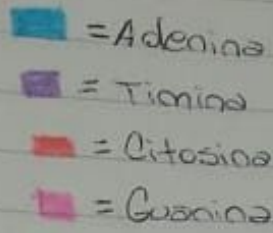 = Adenina
= Timina
= Citosina
= Guanina